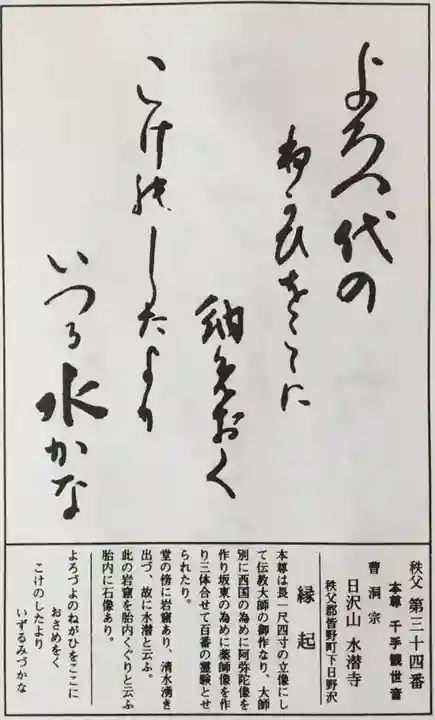 よろつ代の
ねかひをこゝに
納めおく
こけのしたより
いつる水かな
秩父 第三十四番
本尊 千手観世音
曹洞宗
日沢山 水潜寺
秩父郡皆野町下日野沢
縁起
本尊は長一尺四寸の立像にし
て伝教大師の御作なり、大師
別に西国の為めに阿弥陀像を
作り坂東の為めに薬師像を作
り三体合せて百番の霊験とせ
られたり。
堂の傍に岩窟あり、清水湧き
出づ、故に水潜と云ふ。
此の岩窟を胎内くぐりと云ふ
胎内に石像あり。
よろづよのねがひをここに
おさめをく
こけのしたより
いずるみづかな